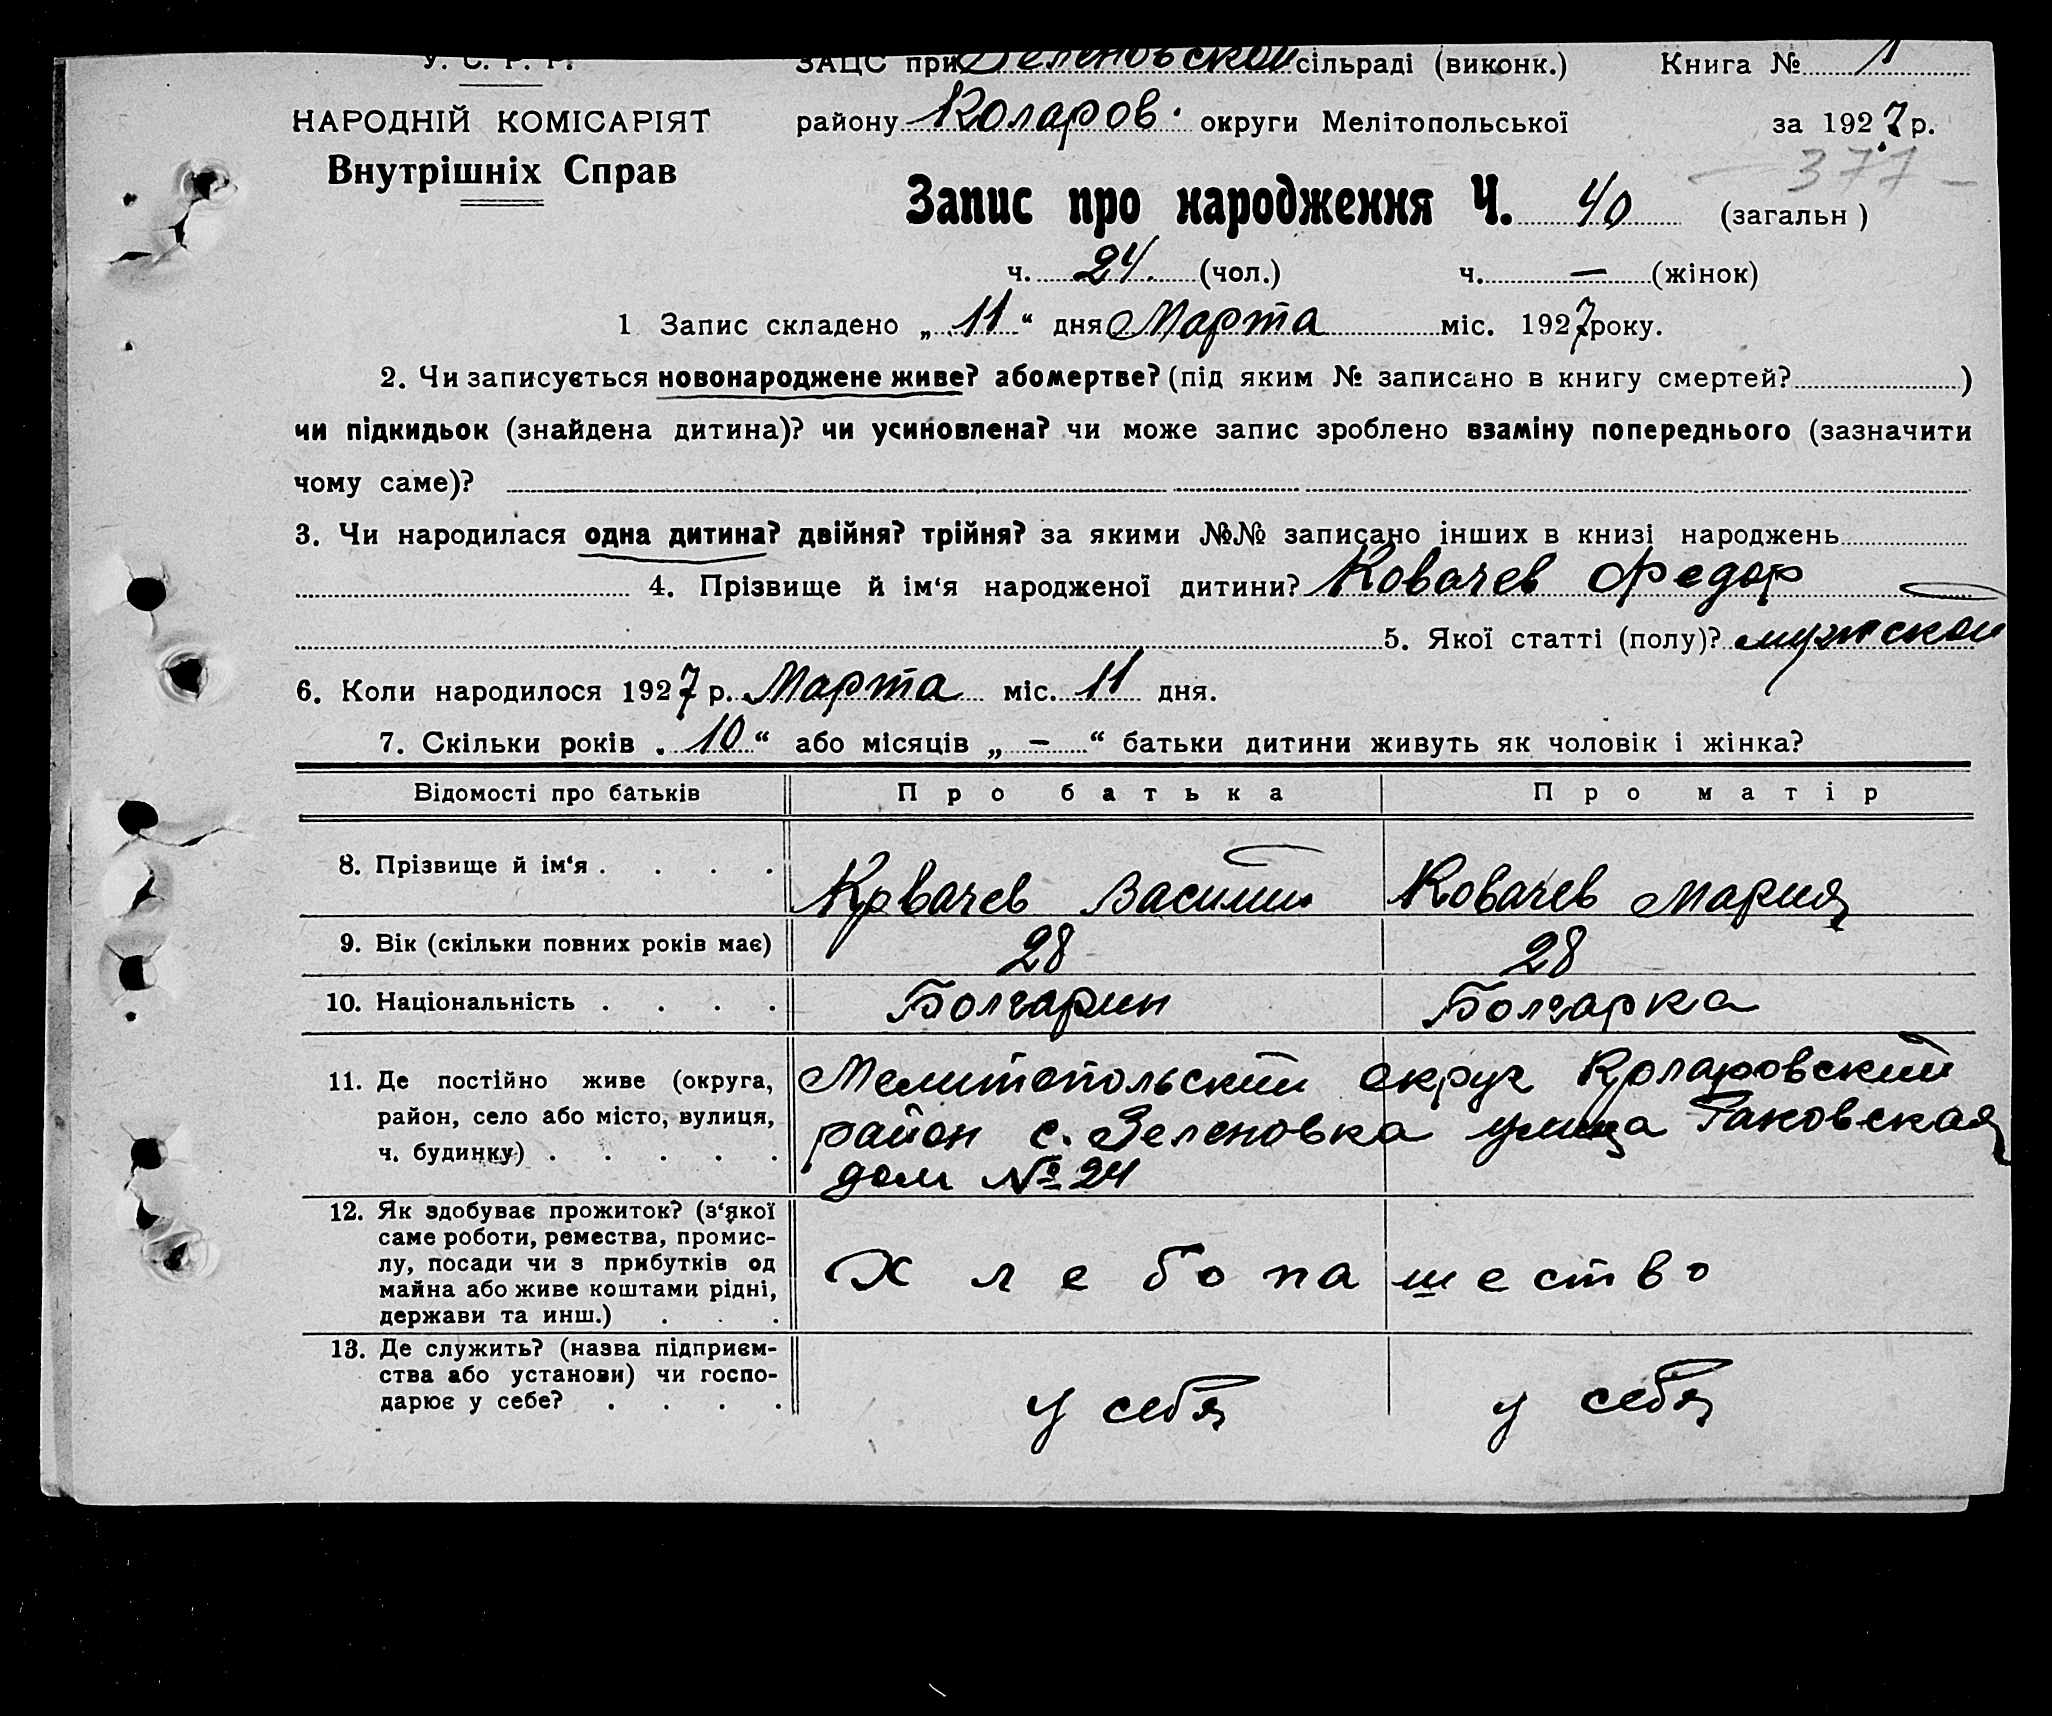 У. С. Р. Р. ЗАЦС при Зеленовской сільраді (виконк.) Книга № 1
НАРОДНІЙ КОМІСАРІЯТ району Коларов. округи Мелітопольської за 1927 р.
Внутрішніх Справ
— 377 —
Запис про народження Ч. 40 (загальн)
ч. 24. (чол.) ч. — (жінок)
1 Запис складено „ 11 “ дня Марта міс. 1927 року.
2. Чи записується новонароджене живе? або мертве? (під яким № записано в книгу смертей? )
чи підкидьок (знайдена дитина)? чи усиновлена? чи може запис зроблено взаміну попереднього (зазначити
чому саме)?
3. Чи народилася одна дитина? двійня? трійня? за якими №№ записано інших в книзі народжень
4. Прізвище й ім‘я народженої дитини? Ковачев Федор
5. Якої статті (полу)? мужской
6. Коли народилося 1927 р. Марта міс. 11 дня.
7. Скільки років „ 10 “ або місяців „ — “ батьки дитини живуть як чоловік і жінка?
Відомості про батьків Про батька Про матір
8. Прізвище й ім‘я . . . . Ковачев Василий Ковачев Мария
9. Вік (скільки повних років має) 28 28
10. Національність . . . . Болгарин Болгарка
11. Де постійно живе (округа, Мелитопольский округ Коларовский
район, село або місто, вулиця, район с. Зеленовка улица Раковская
ч. будинку) . . . . . дом № 24
12. Як здобуває прожиток? (з‘якої
саме роботи, ремества, промис-
лу, посади чи з прибутків од Хлебопашество
майна або живе коштами рідні,
держави та инш.) . . .
13. Де служить? (назва підприєм-
ства або установи) чи госпо-
дарює у себе? . . . . у себя у себя